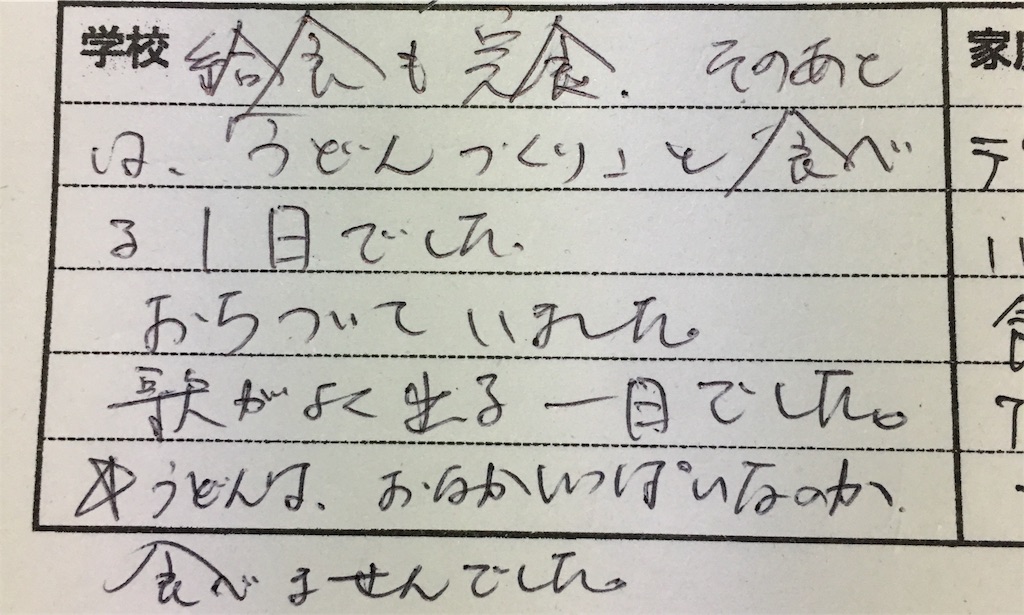 学校 給食も完食. そのあと
は、「うどんづくり」と食べ
る1日でした。
おちついていました。
歌がよく出る一日でした。
☆うどんは、おなかいっぱいなのか、
食べませんでした。